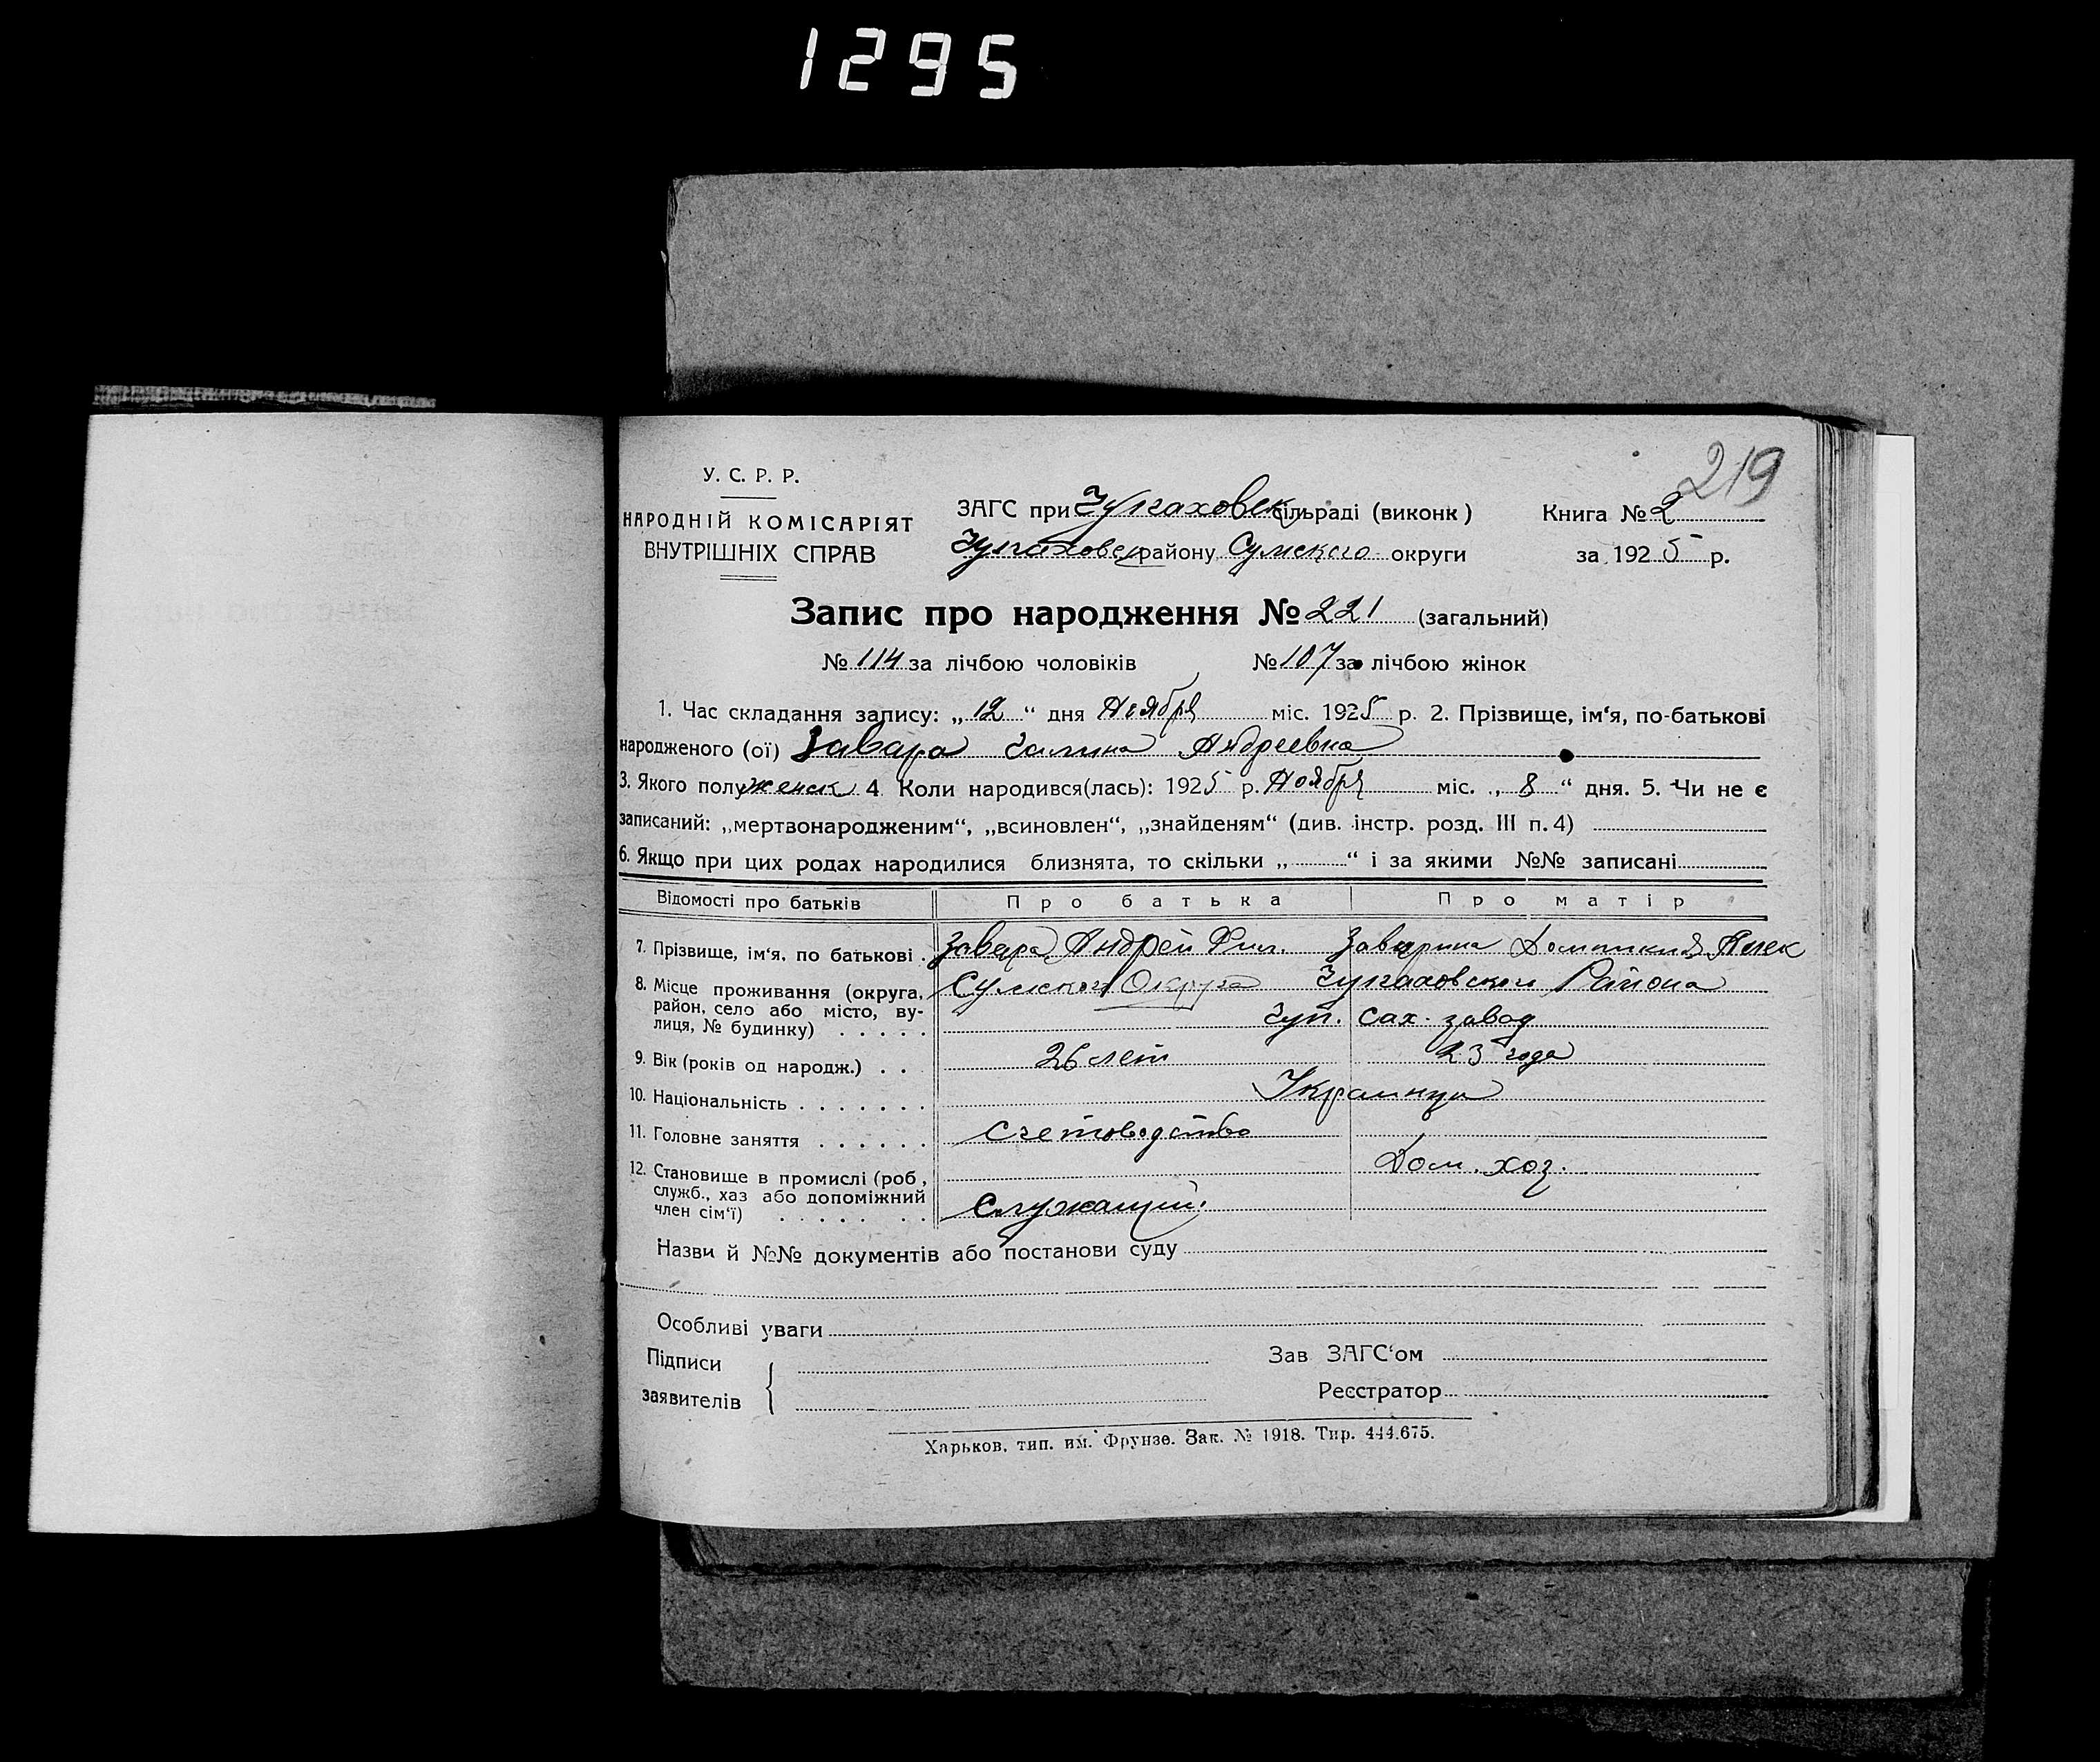 1295
219
У. С. Р. Р.
НАРОДНІЙ КОМІСАРІЯТ
ВНУТРІШНІХ СПРАВ
ЗАГС при сільраді (виконк)
району, Сумского округи
Книга № 2
за 1925 р.
Запис про народження № 221 (загальний)
№ 114 за лічбою чоловіків № 107 за лічбою жінок
1. Час складання запису: „12“ дня Ноября міс. 1925 р. 2. Прізвище, ім‘я, по-батькові
народженого (ої) Завара Галина Андреевна
3. Якого полу женск 4 Коли народився(лась): 1925 р. Ноября міс. „8“ дня. 5. Чи не є
записаний: „мертвонародженим“, „всиновлен“, „знайденям“ (див. інстр. розд. III п. 4)
6. Якщо при цих родах народилися близнята, то скільки „ “ і за якими №№ записані
Відомості про батьків Про батька Про матір
7. Прізвище, ім‘я, по батькові . Завара Андрей Фил. Заварина
8. Місце проживання (округа, Сумской Округа Района
район, село або місто, ву-
лиця, № будинку) . . . . . сах. завод
9. Вік (років од народж.) . . 26 лет 23 года
10. Національність . . . . . . . Украинцы
11. Головне заняття . . . . . . Счетоводство
12. Становище в промислі (роб, Дом. хоз.
служб., хаз або допоміжний
член сім‘ї) . . . . . . . Служащий.
Назви й №№ документів або постанови суду
Особливі уваги
Підписи
заявителів
Зав ЗАГС‘ом
Реєстратор
Харьков, тип. им. Фрунзе. Зак. № 1918. Тир. 444.675.